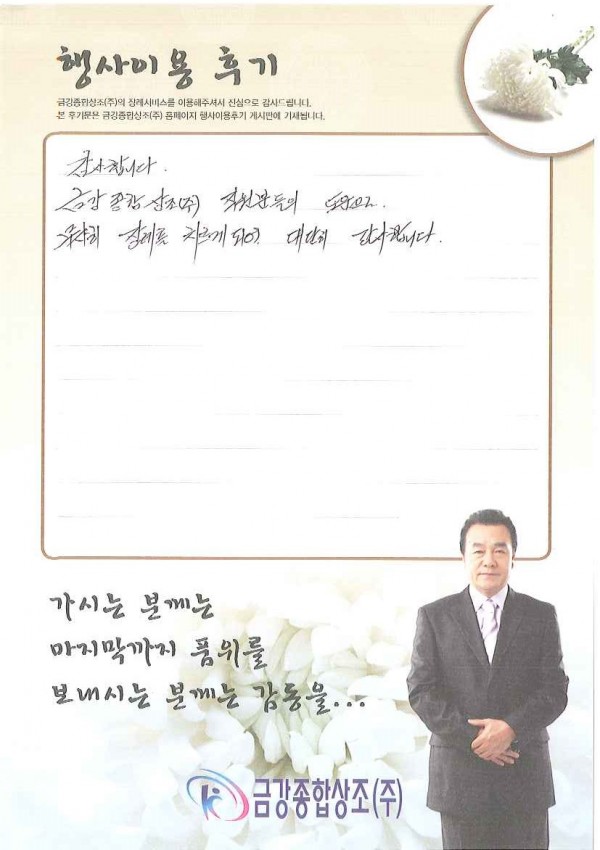 행사이용 후기
금강종합상조(주)의 장례서비스를 이용해주셔서 진심으로 감사드립니다.
본 후기문은 금강종합상조(주) 홈페이지 행사이용후기 게시판에 기재됩니다.
감사합니다.
금강 종합 상조(주) 직원분들의 도움으로
무사히 장례를 치르게 되어 대단히 감사합니다.
가시는 분께는
마지막까지 품위를
보내시는 분께는 감동을...
금강종합상조(주)